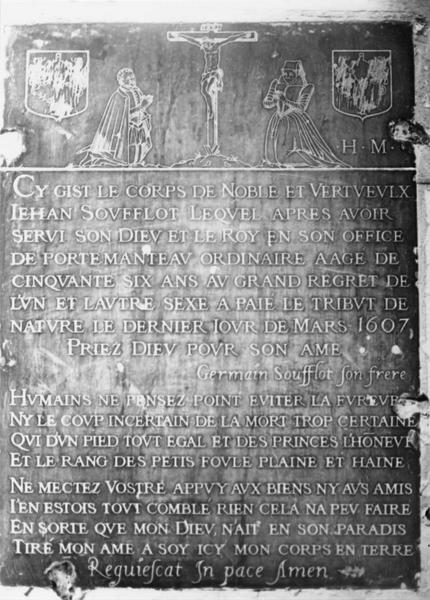 · H · M ·
CY GIST LE CORPS DE NOBLE ET VERTVEVLX
IEHAN SOVFFLOT LEQVEL APRES AVOIR
SERVI SON DIEV ET LE ROY EN SON OFFICE
DE PORTEMANTEAV ORDINAIRE AAGE DE
CINQVANTE SIX ANS AV GRAND REGRET DE
L'VN ET LAVTRE SEXE A PAIE LE TRIBVT DE
NATVRE LE DERNIER IOVR DE MARS 1607
PRIEZ DIEV POVR SON AME
Germain Soufflot son frere
HVMAINS NE PENSEZ POINT EVITER LA FVREVR
NY LE COVP INCERTAIN DE LA MORT TROP CERTAINE
QVI D'VN PIED TOVT EGAL ET DES PRINCES L'HONEVR
ET LE RANG DES PETIS FOVLE PLAINE ET HAINE
NE MECTEZ VOSTRE APPVY AVX BIENS NY AVS AMIS
I'EN ESTOIS TOVT COMBLE RIEN CELA NA PEV FAIRE
EN SORTE QVE MON DIEV, N'AIT EN SON PARADIS
TIRÉ MON AME A SOY ICY MON CORPS EN TERRE
Requiescat In pace Amen